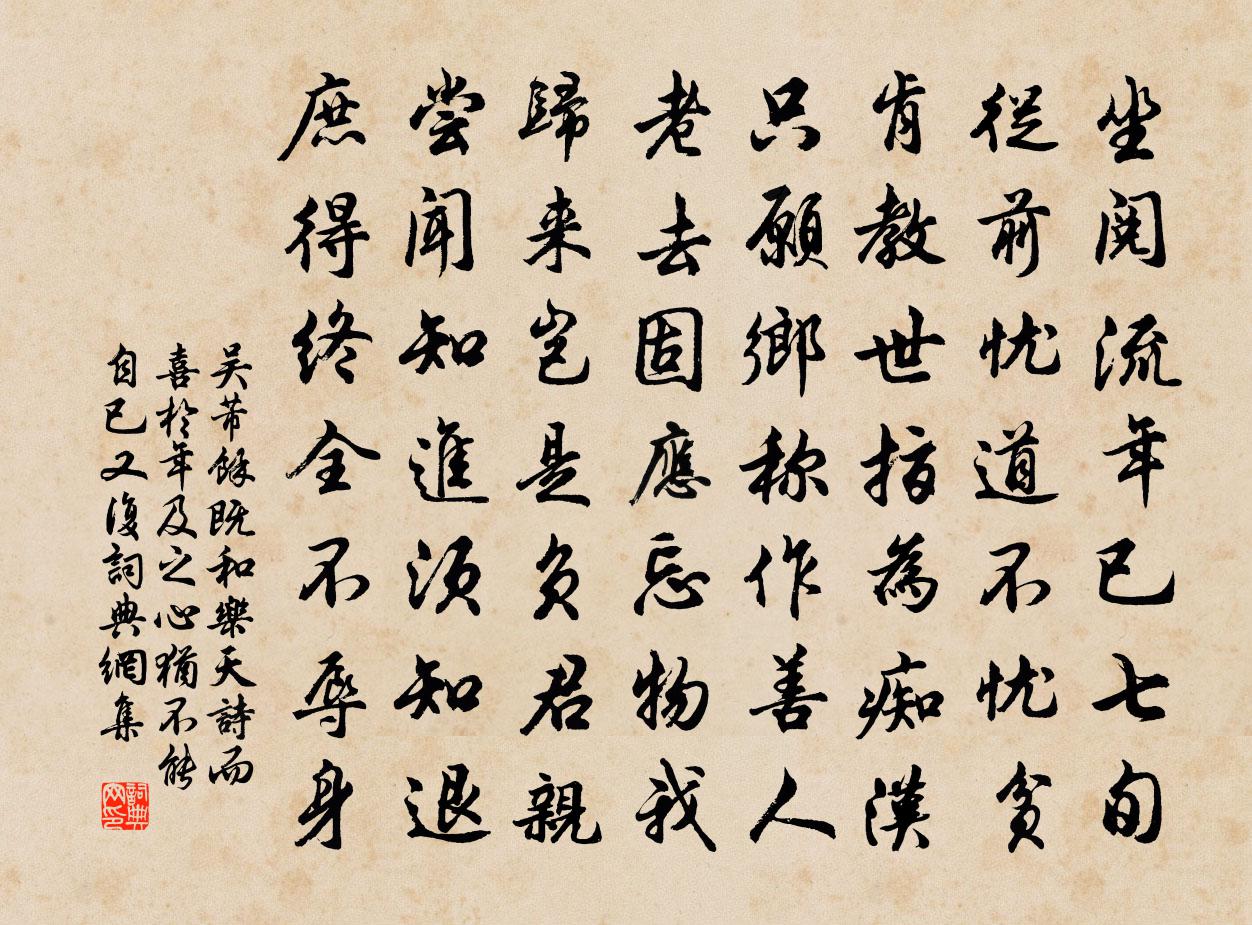 坐閱流年已七旬
從前忧道不忧貧
肯教世指為痴漢
只願鄉称作善人
老去固應忘物我
歸来豈是负君親
嘗聞知進須知退
庶得终全不辱身
吴芾餘既和樂天詩而
喜於年及之心猶不能
自已又復詞典網集
詞典网印